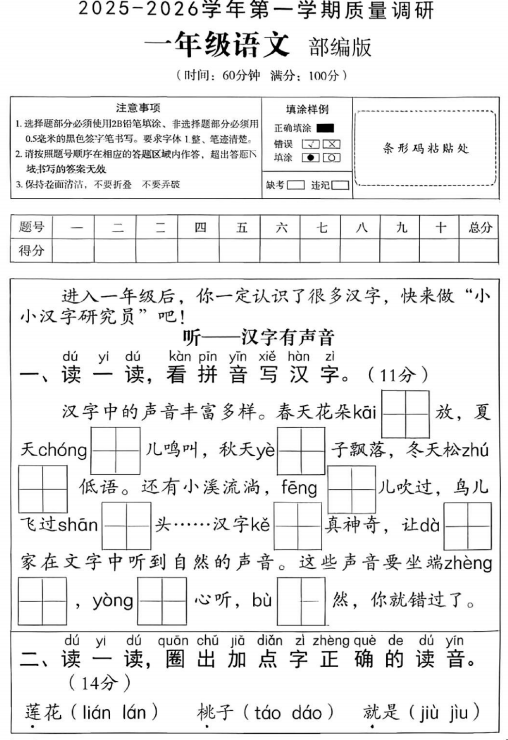 2025-2026学年第一学期质量调研
一年级语文 部编版
（时间：60分钟 满分：100分）
注意事项
1.选择题部分必须使用2B铅笔填涂、非选择题部分必须用
0.5毫米的黑色签字笔书写。要求字体工整、笔迹清楚。
2.请按照题号顺序在相应的答题区域内作答，超出答题区
域书写的答案无效
3.保持卷面清洁，不要折叠 不要弄破
填涂样例
正确填涂
错误
填涂
缺考 违纪
条形码粘贴处
题号 一 二 三 四 五 六 七 八 九 十 总分
得分
进入一年级后，你一定认识了很多汉字，快来做“小
小汉字研究员”吧！
听——汉字有声音
dú yi dú kàn pīn yīn xiě hàn zì
一、读一读，看拼音写汉字。（11分）
汉字中的声音丰富多样。春天花朵kāi 放，夏
天chóng 儿鸣叫，秋天yè 子飘落，冬天松zhú
低语。还有小溪流淌，fēng 儿吹过，鸟儿
飞过shān 头……汉字kě 真神奇，让dà
家在文字中听到自然的声音。这些声音要坐端zhèng
，yòng 心听，bù 然，你就错过了。
dú yi dú quān chū jiā diǎn zì zhèng què de dú yīn
二、读一读，圈出加点字正确的读音。
（14分）
莲花（lián lán） 桃子（táo dáo） 就是（jiù jìu）